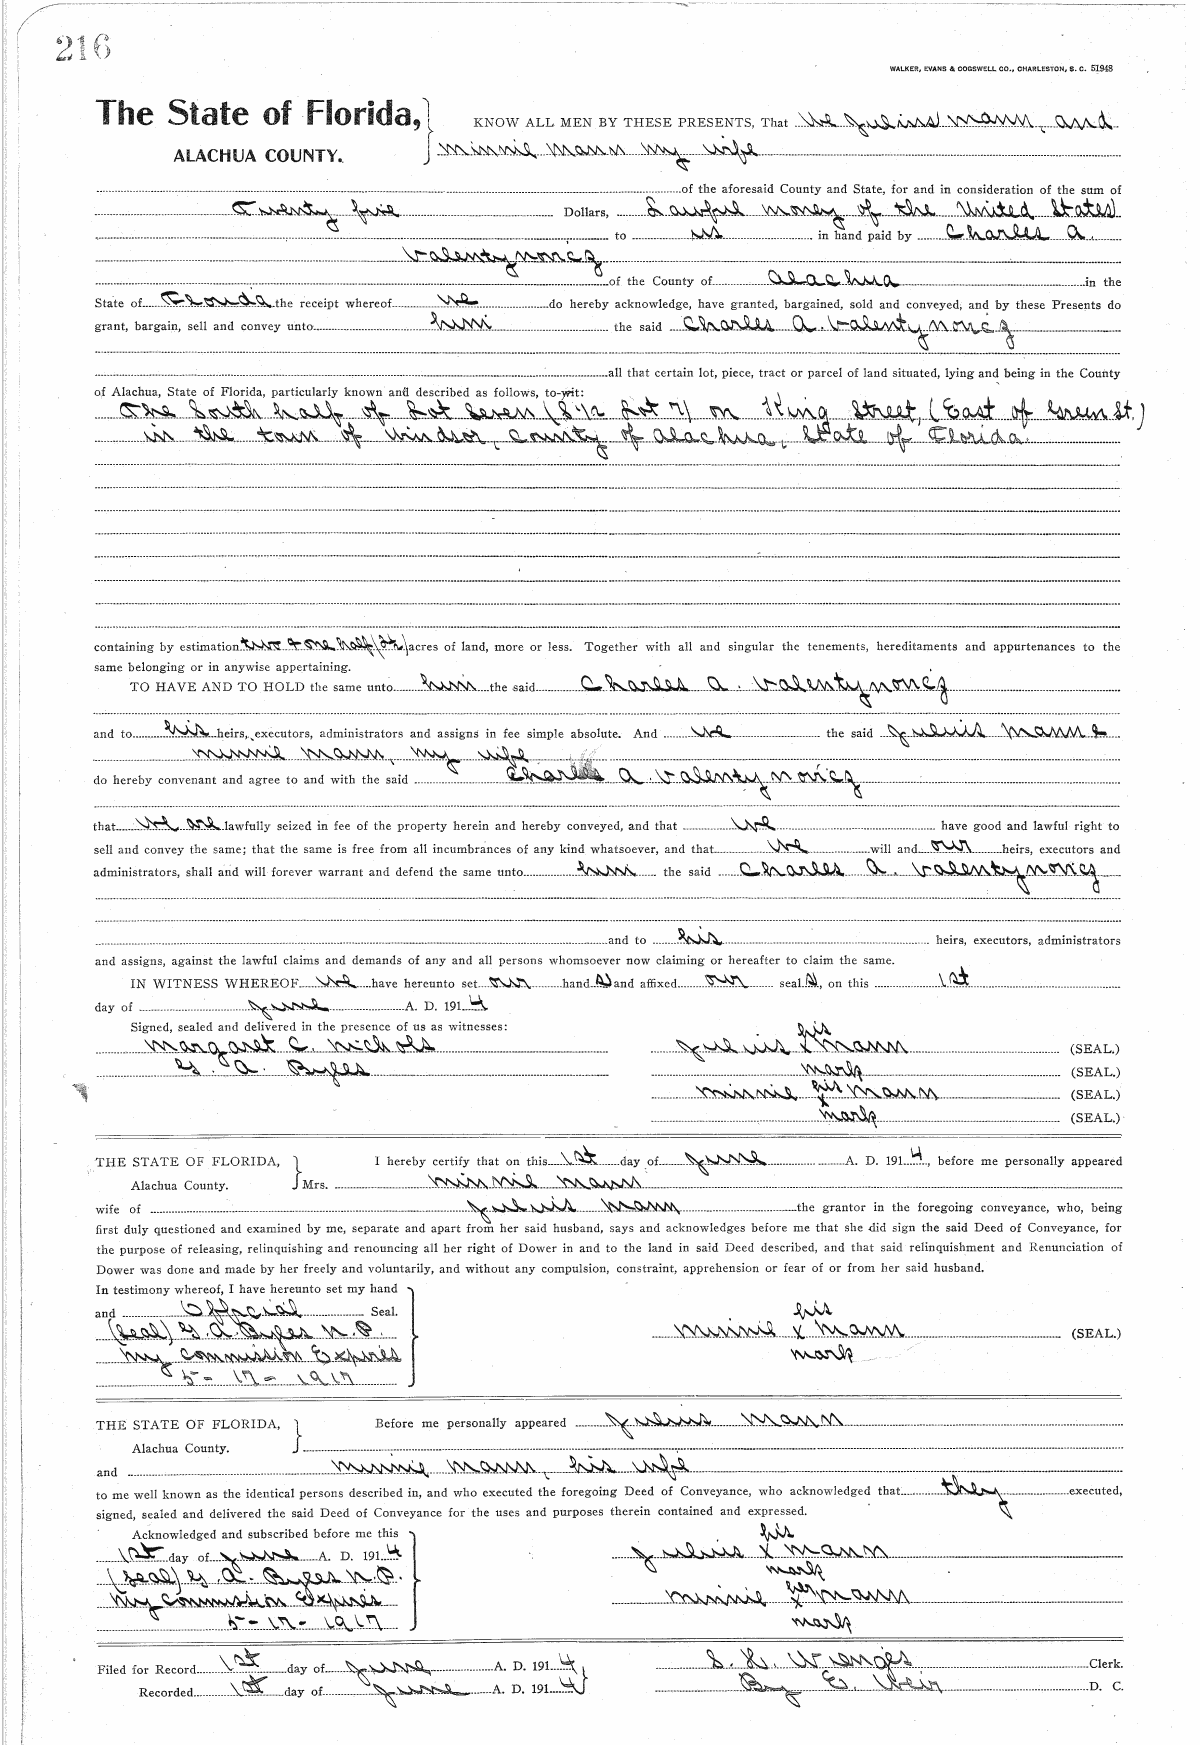 216
WALKER, EVANS & COGSWELL CO., CHARLESTON, S. C. 51948
The State of Florida,
ALACHUA COUNTY.
KNOW ALL MEN BY THESE PRESENTS, That We Julius Mann, and
Minnie Mann my wife
of the aforesaid County and State, for and in consideration of the sum of
Twenty five Dollars, Lawful money of the United States
to us in hand paid by Charles A.
Valentynovicz
of the County of Alachua in the
State of Florida the receipt whereof we do hereby acknowledge, have granted, bargained, sold and conveyed, and by these Presents do
grant, bargain, sell and convey unto him the said Charles A. Valentynovicz
all that certain lot, piece, tract or parcel of land situated, lying and being in the County
of Alachua, State of Florida, particularly known and described as follows, to-wit:
The South half of Lot Seven (S 1/2 Lot 7) on King Street, (East of Green St.)
in the town of Windsor, County of Alachua, State of Florida.
containing by estimation two & one half (2½) acres of land, more or less. Together with all and singular the tenements, hereditaments and appurtenances to the
same belonging or in anywise appertaining.
TO HAVE AND TO HOLD the same unto him the said Charles A. Valentynovicz
and to his heirs, executors, administrators and assigns in fee simple absolute. And we the said Juluis Mann &
Minnie Mann, my wife
do hereby convenant and agree to and with the said Charles A Valentynovicz
that we are lawfully seized in fee of the property herein and hereby conveyed, and that we have good and lawful right to
sell and convey the same; that the same is free from all incumbrances of any kind whatsoever, and that we will and our heirs, executors and
administrators, shall and will forever warrant and defend the same unto him the said Charles A. Valentynovicz
and to his heirs, executors, administrators
and assigns, against the lawful claims and demands of any and all persons whomsoever now claiming or hereafter to claim the same.
IN WITNESS WHEREOF we have hereunto set our hand s and affixed our seal s, on this 1st
day of June A. D. 1914
Signed, sealed and delivered in the presence of us as witnesses:
his
Margaret C. Nichols Juluis x Mann (SEAL.)
G. A. Byles mark (SEAL.)
Minnie his x Mann (SEAL.)
mark (SEAL.)
THE STATE OF FLORIDA,
Alachua County.
I hereby certify that on this 1st day of June A. D. 1914, before me personally appeared
Mrs. Minnie Mann
wife of Juluis Mann the grantor in the foregoing conveyance, who, being
first duly questioned and examined by me, separate and apart from her said husband, says and acknowledges before me that she did sign the said Deed of Conveyance, for
the purpose of releasing, relinquishing and renouncing all her right of Dower in and to the land in said Deed described, and that said relinquishment and Renunciation of
Dower was done and made by her freely and voluntarily, and without any compulsion, constraint, apprehension or fear of or from her said husband.
In testimony whereof, I have hereunto set my hand
and Official Seal.
(Seal) G. A. Byles N.P.
My commission Expires
5-17-1917
his
Minnie x Mann (SEAL.)
mark
THE STATE OF FLORIDA,
Alachua County.
Before me personally appeared Julius Mann
and Minnie Mann, his wife
to me well known as the identical persons described in, and who executed the foregoing Deed of Conveyance, who acknowledged that they executed,
signed, sealed and delivered the said Deed of Conveyance for the uses and purposes therein contained and expressed.
Acknowledged and subscribed before me this
1st day of June A. D. 1914
(Seal) G. A. Byles N.P.
My commission Expires
5-17-1917
his
Juluis x Mann
mark
Minnie her x Mann
mark
Filed for Record 1st day of June A. D. 1914, S. H. Wienges Clerk.
Recorded 1st day of June A. D. 1914 By E. Weir D. C.